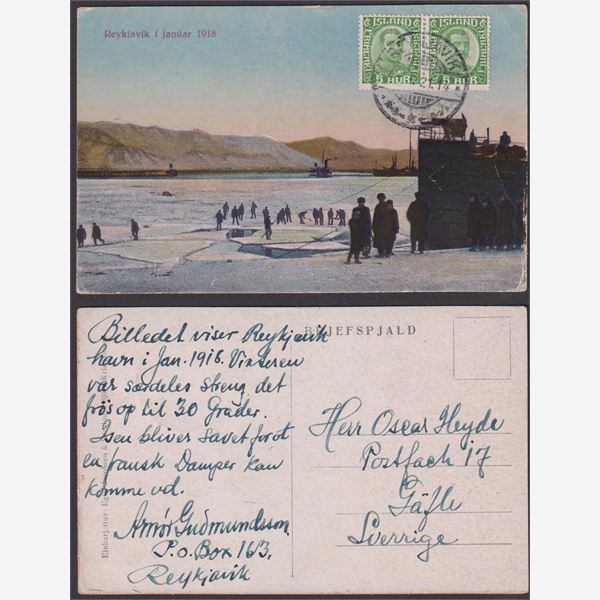 Reykjavík í janúar 1918
ÍSLAND ÍSLAND
5 AUR 5 AUR
BRJEFSPJALD
Billedet viser Reykjavik
havn i Jan. 1918. Vinteren
var særdeles streng det
frös op til 30 Grader.
Isen bliver savet forat
en fransk Damper kan
komme ud.
Arnór Gudmundsson
P.o. Box 163.
Reykjavik
Herr Oscar Heyde
Postfach 17
Gäfle
Sverrige